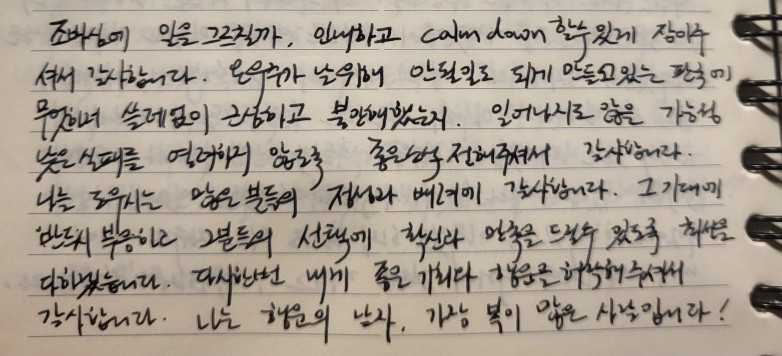 조바심에 일을 그르칠까, 인내하고 calm down 할수 있게 잡아주
셔서 감사합니다. 온우주가 날위해 안될일도 되게 만들고있는 판국에
무엇하러 쓸데없이 근심하고 불안해했는지. 일어나지도 않을 가능성
낮은 실패를 염려하지 않도록 좋은소식 전해주셔서 감사합니다.
나를 도우시는 많은 분들의 정성과 배려에 감사합니다. 그 기대에
반드시 부응하고 그분들의 선택에 확신과 만족을 드릴수 있도록 최선을
다하겠습니다. 다시한번 내게 좋은 기회와 행운을 허락해 주셔서
감사합니다. 나는 행운의 남자, 가장 복이 많은 사람입니다!